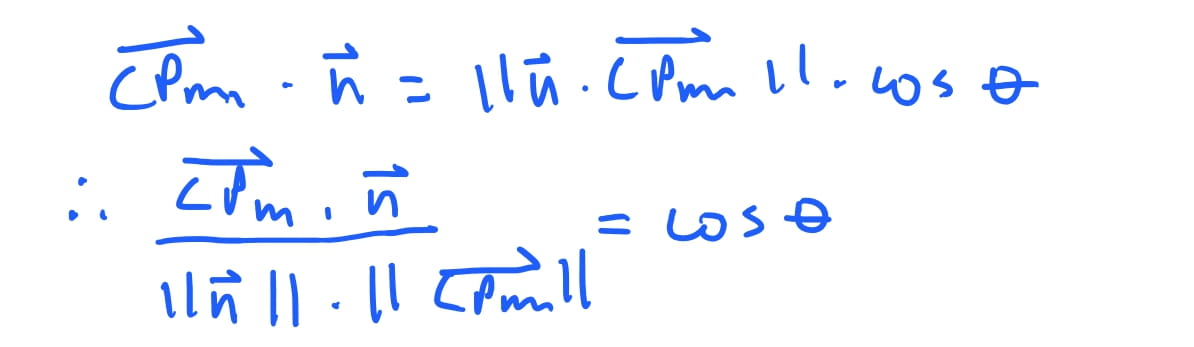 $\overrightarrow{CP_m} \cdot \vec{n} = \|\vec{n} \cdot \overrightarrow{CP_m}\| \cdot \cos\theta$
$\therefore \frac{\overrightarrow{CP_m} \cdot \vec{n}}{\|\vec{n}\| \cdot \|\overrightarrow{CP_m}\|} = \cos\theta$